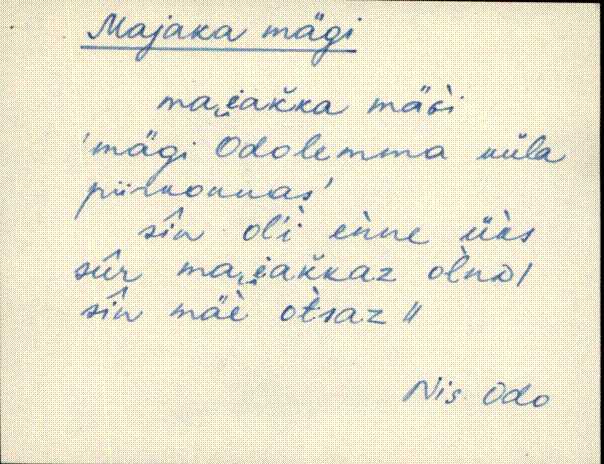 Majaka mägi
mai̯ak̆ka mäɢ̀i
'mägi Odolemma küla
piirkonnas'
sîn oĺ̀i eǹne üks̀
sûr mai̯ak̆kaz oĺ̀nD/
sîn mäè ot̀saz //
Nis Odo